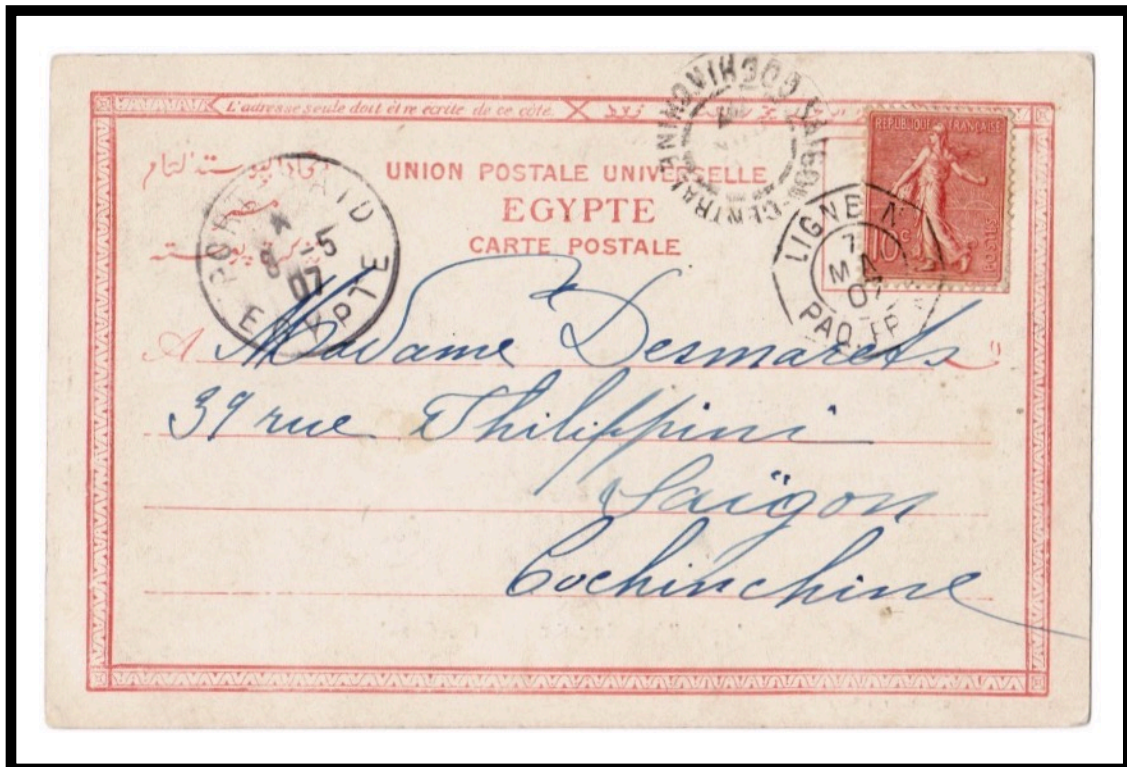 L'adresse seule doit être ecrite de ce côté.
UNION POSTALE UNIVERSELLE
EGYPTE
CARTE POSTALE
PORT SAID
4 5
07
EGYPTE
SAIGON-CENTRAL COCHINCHINE
REPUBLIQUE FRANÇAISE
10 c
POSTES
LIGNE N
7
MA
07
PAQ. FR
A Madame Desmarets
39 rue Philippini
Saïgon
Cochinchine